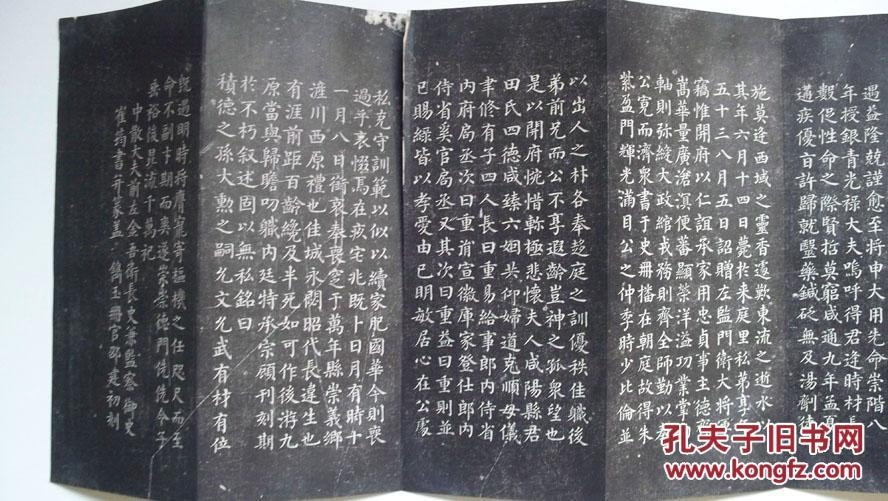 遇益隆兢謹愈至將申大用先命崇階八
年授銀青光祿大夫嗚呼得君逢時材長
數促性命之際賢哲莫窮咸通九年孟夏
遘疾優旨許歸就毉藥鍼砭無及湯劑徒
施莫逢西域之靈香遽歎東流之逝水以
其年六月十四日薨於來庭里私第享年
五十三八月五日詔贈左監門衛大將軍
竊惟開府以仁誼承家用忠貞事主德齊
嵩華量廣滄溟便蕃顯榮洋溢功業掌
軸則弥縫大政綰戎務則齊全師勤以奉
公寬而濟衆書于史冊播在朝庭故得朱
紫盈門輝光滿目公之仲季時少比倫並
以出人之材各奉趍庭之訓優秩佳職後
弟前兄而公不享遐齡豈神之孤衆望也
是以開府惋惜軫極悲懷夫人咸陽縣君
田氏四德咸臻六姻共仰婦道克順母儀
聿修有子四人長曰重易給事郎內侍省
內府局丞次曰重胤宣徽庫家登仕郎內
侍省奚官局丞又其次曰重益曰重則並
已賜綠皆以孝愛由己明敏居心在公處
私克守訓範以似以續家肥國華今則喪
過乎哀惙焉在疚宅兆既卜日月有時十
一月八日銜哀奉喪窆于萬年縣崇義鄉
滻川西原禮也佳城永閟昭代長違生也
有涯前距百齡纔及半死如可作後游九
原當與歸瞻叨職內廷特承宗顧刊刻期
於不朽叙述固以無私銘曰
積德之孫大勳之嗣允文允武有材有位
既遇明時將膺寵寄樞機之任咫尺而至
命不副才期而奧遂崇崇德門侁侁令子
垂裕後昆流千萬祀
中散大夫前左金吾衛長史兼監察御史
崔筠書并篆蓋 鐫玉冊官邵建初刻
孔夫子旧书网
www.kongfz.com